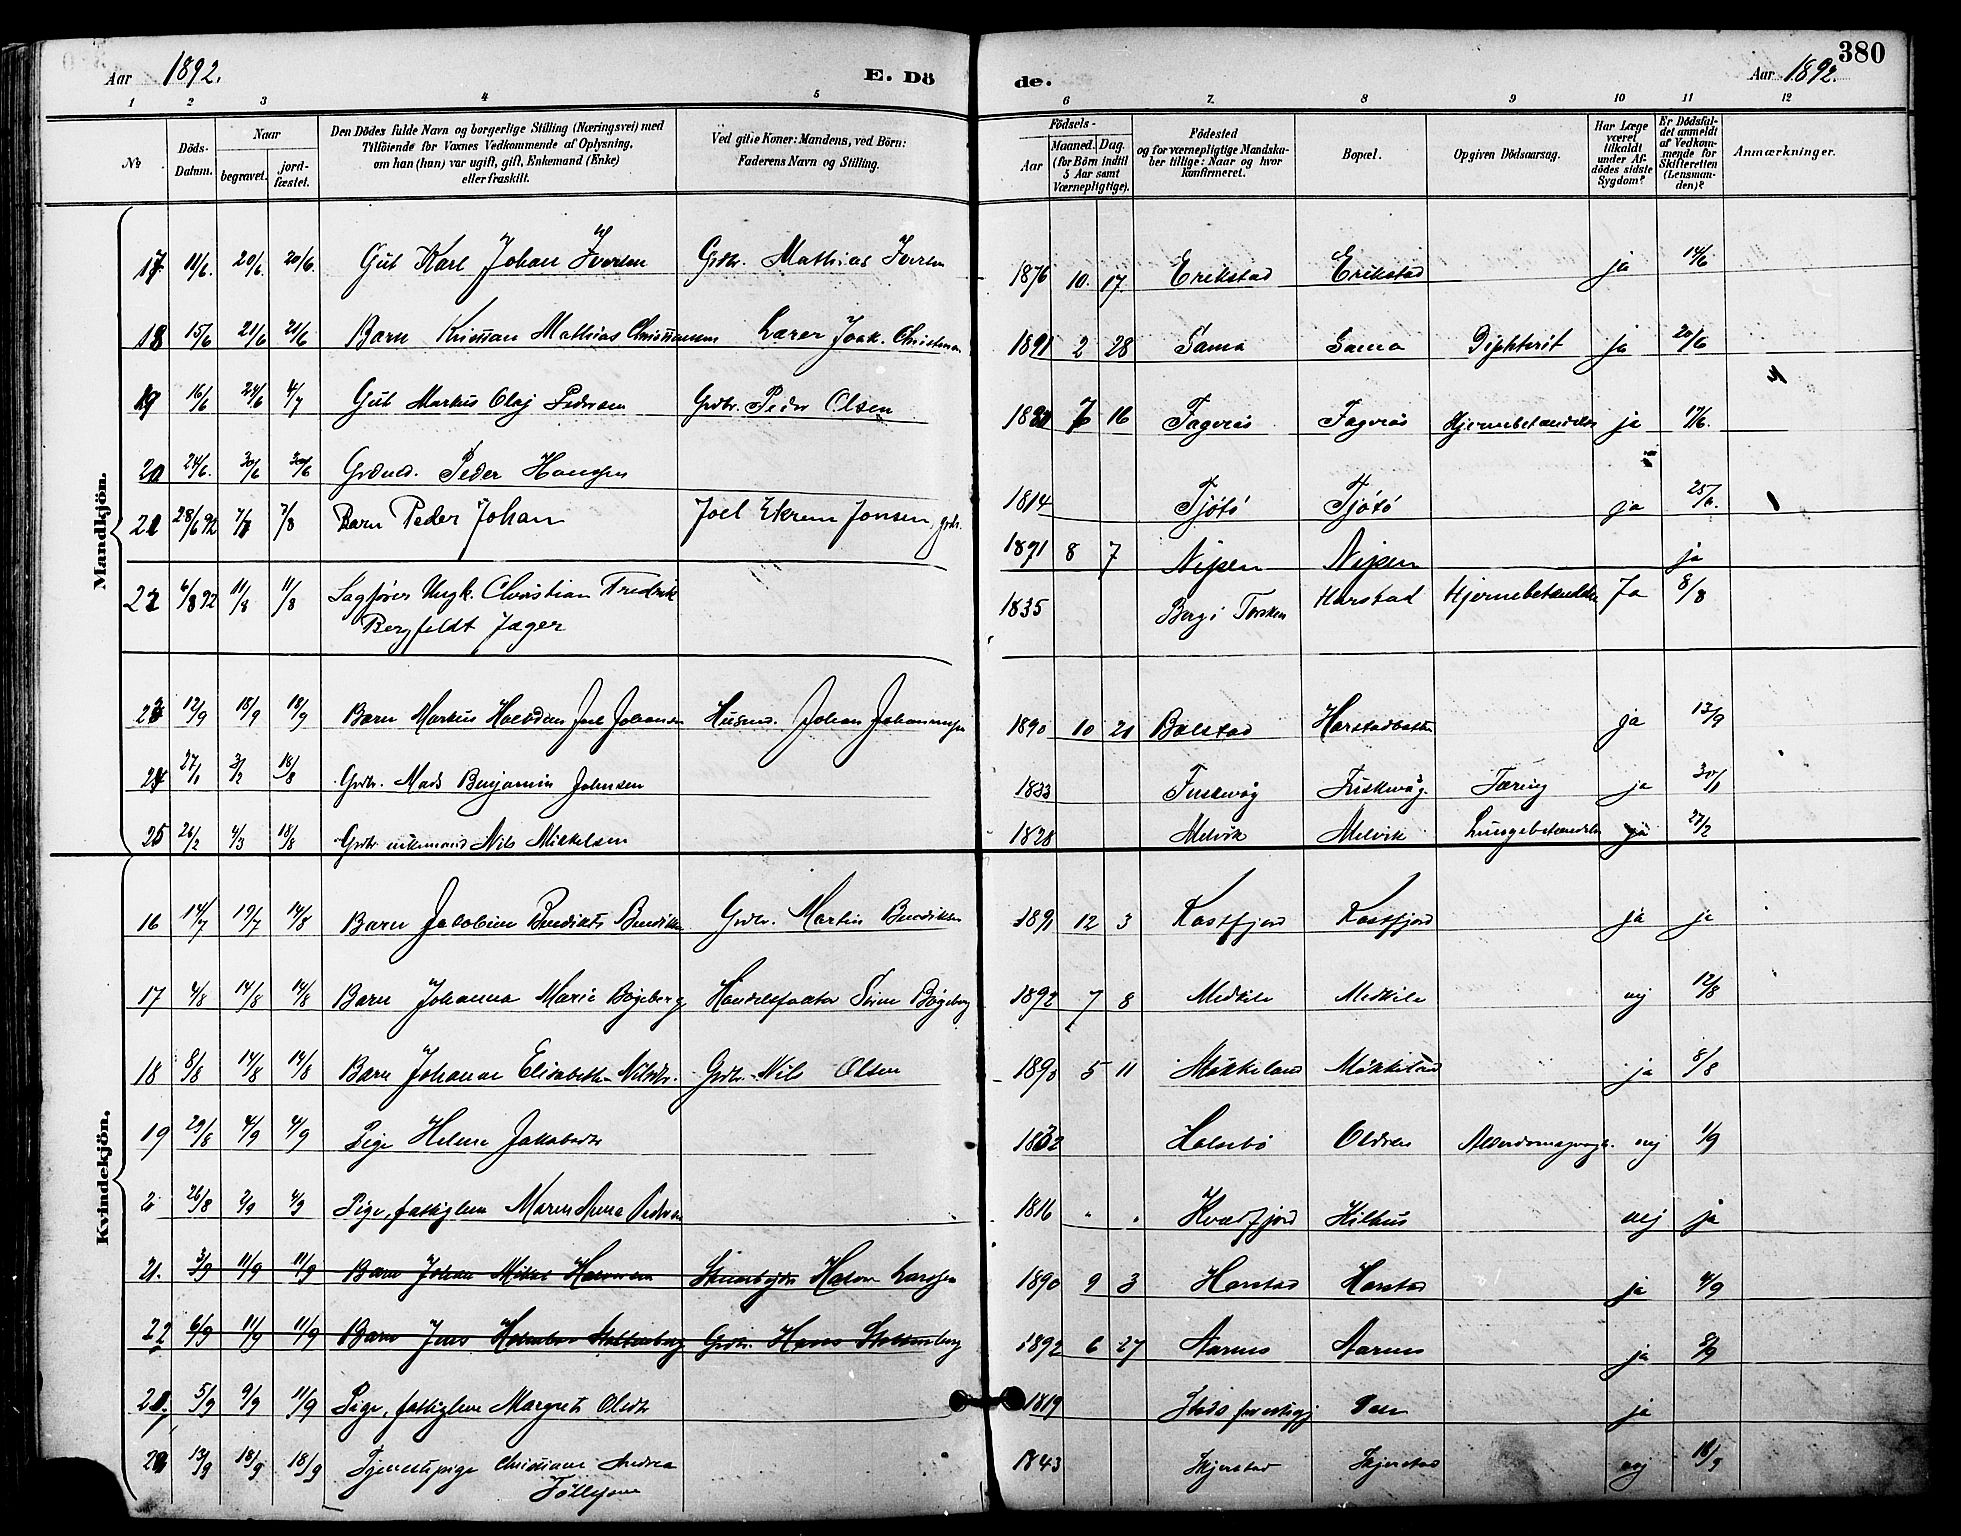 380
Aar 1892. E. Dö de. Aar 1892.
1 2 3 4 5 6 7. 8 9 10 11 12
No. Döds-Datum. Naar begravet. jord-fæstet. Den Dödes fulde Navn og borgerlige Stilling (Næringsvei) med Tilföiende for Voxnes Vedkommende af Oplysning, om han (hun) var ugift, gift, Enkemand (Enke) eller fraskilt. Ved gifte Koner: Mandens, ved Börn: Faderens Navn og Stilling. Födsels- Aar Maaned. Dag. (for Börn indtil 5 Aar samt Værnepligtige). Födested og for værnepligtige Mandskaber tillige: Naar og hvor konfirmeret. Bopæl. Opgiven Dödsaarsag. Har Læge været tilkaldt under Afdödes sidste Sygdom? Er Dödsfaldet anmeldt af Vedkommende for Skifteretten (Lensmanden)? Anmærkninger.
Mandkjön.
17 11/6. 20/6. 20/6. Gut Karl Johan Iversen Grdbr. Mathias Iversen 1876 10. 17. Erikstad Erikstad ja 14/6
18 15/6 21/6 21/6 Barn Kristian Mathias Christiansen Lærer Joak. Christensen 1891 2 28 Sama Sama Diphterit ja 20/6
19 16/6 24/6 4/7 Gut Markus Olaj Pedersen Grdbr. Peder Olsen 16 Fagerås Fagerås Hjernebetændelse ja 17/6.
20 24/6. 30/6 30/6 Peder Hansen 1814 Tjøtø Tjøtø ja 25/6.
21 28/6 92 7/8 7/8 Barn Peder Johan Joel Ekrem Jonsen, grdbr. 1891 8 7 Nipen Nipen ja
22 6/8 92 11/8 11/8 Sagfører Ungk. Christian Fredrik
Bergfeldt Jæger 1835 Berg i Torsken Harstad Hjernebetændelse Ja 8/8
23 12/9 18/9 18/9 Barn Markus Johansen Husmd. Johan Johannessen 1890 10 21 Bolstad Harstadbotten ja 13/9
24 27/1 3/2 18/8 Grdbr. Mads Benjamin Johnsen 1833 Fuskevåg Fuskevåg. Tæring ja 30/1
25 26/2 4/3 18/8 Grdbr. enkemand Nils Mikkelsen 1828 Melvik Melvik Lungebetændelse ja 27/2
Kvindekjön.
16 14/7 19/7 14/8 Barn Jakobine Benedikte Bendiktsen Grdbr. Martin Bendiktsen 1891 12 3 Kastfjord Kastfjord ja ja
17 4/8 14/8 14/8 Barn Johanna Marie Bøgeberg Handelsfaktor Sören Bøgeberg 1892 7 8 Medkile Medkile nej 12/8
18 8/8 14/8 14/8 Barn Johanne Elisabeth Nilsdr. Grdbr. Nils Olsen 1890 5 11 Møkkeland Møkkeland ja 8/8
19 29/8 4/9 4/9 Pige Helene Jakobsdtr 1832 Halsebø Oldren nej 1/9
2 26/8 2/9 4/9 Pige, fattiglem Maren Anna Pedersen 1816 " " Kvædfjord Kilhus nej ja
21. 3/9 11/9 11/9 Barn Johan Mikal Halvorsen Halvor Larssen 1890 9 3 Harstad Harstad ja 4/9
22 6/9 11/9 11/9 Barn Jens Stoltenberg Grdbr. Hans Stoltenberg 1892 6 27 Aarnes Aarnes ja 8/9
21, 5/9 9/9 11/9 Pige, fattiglem Margrete Olsdtr 1819 ja
22 13/9 18/9 18/9 Tjenestepige Christiane Andrea
Tøllefsen 1843 Skjerstad Skjerstad nej 18/9